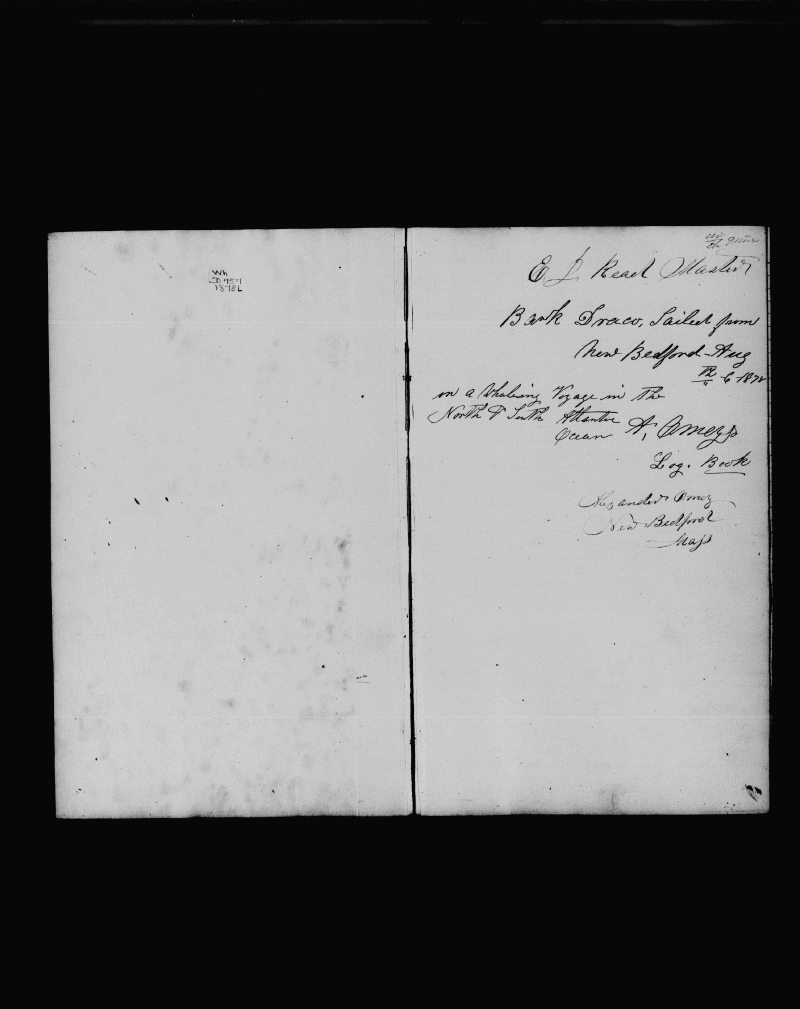 Wh
D757
1878L
E J Read Master
Bark Draco, Sailed from
New Bedford Aug
12 6 1878
on a Whaleing Voyage in the
North & South Atlantic
Ocean A, Amezs
Log. Book
Alexander Amez
New Bedford
Mass